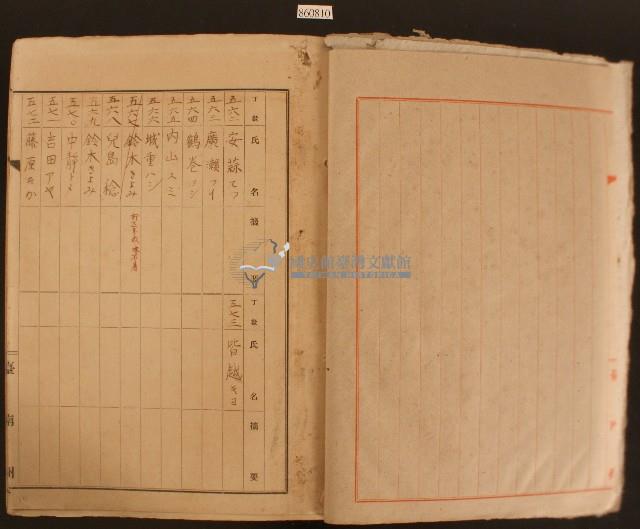 860810
丁數 氏名 摘要
五六二 安蒜てつ
五六三 廣瀬フイ
五六四 鶴巻ヨシ
五六五 內山スミ
五六六 城重ハシ
五六七 鈴木きよみ
五六八 兒島稔
五六九 鈴木きよみ
五七〇 中靜トメ
五七一 吉田アヤ
五七二 藤原
丁數 氏名 摘要
五七三 皆越キヨ
國史館臺灣文獻館
TAIWAN HISTORICA